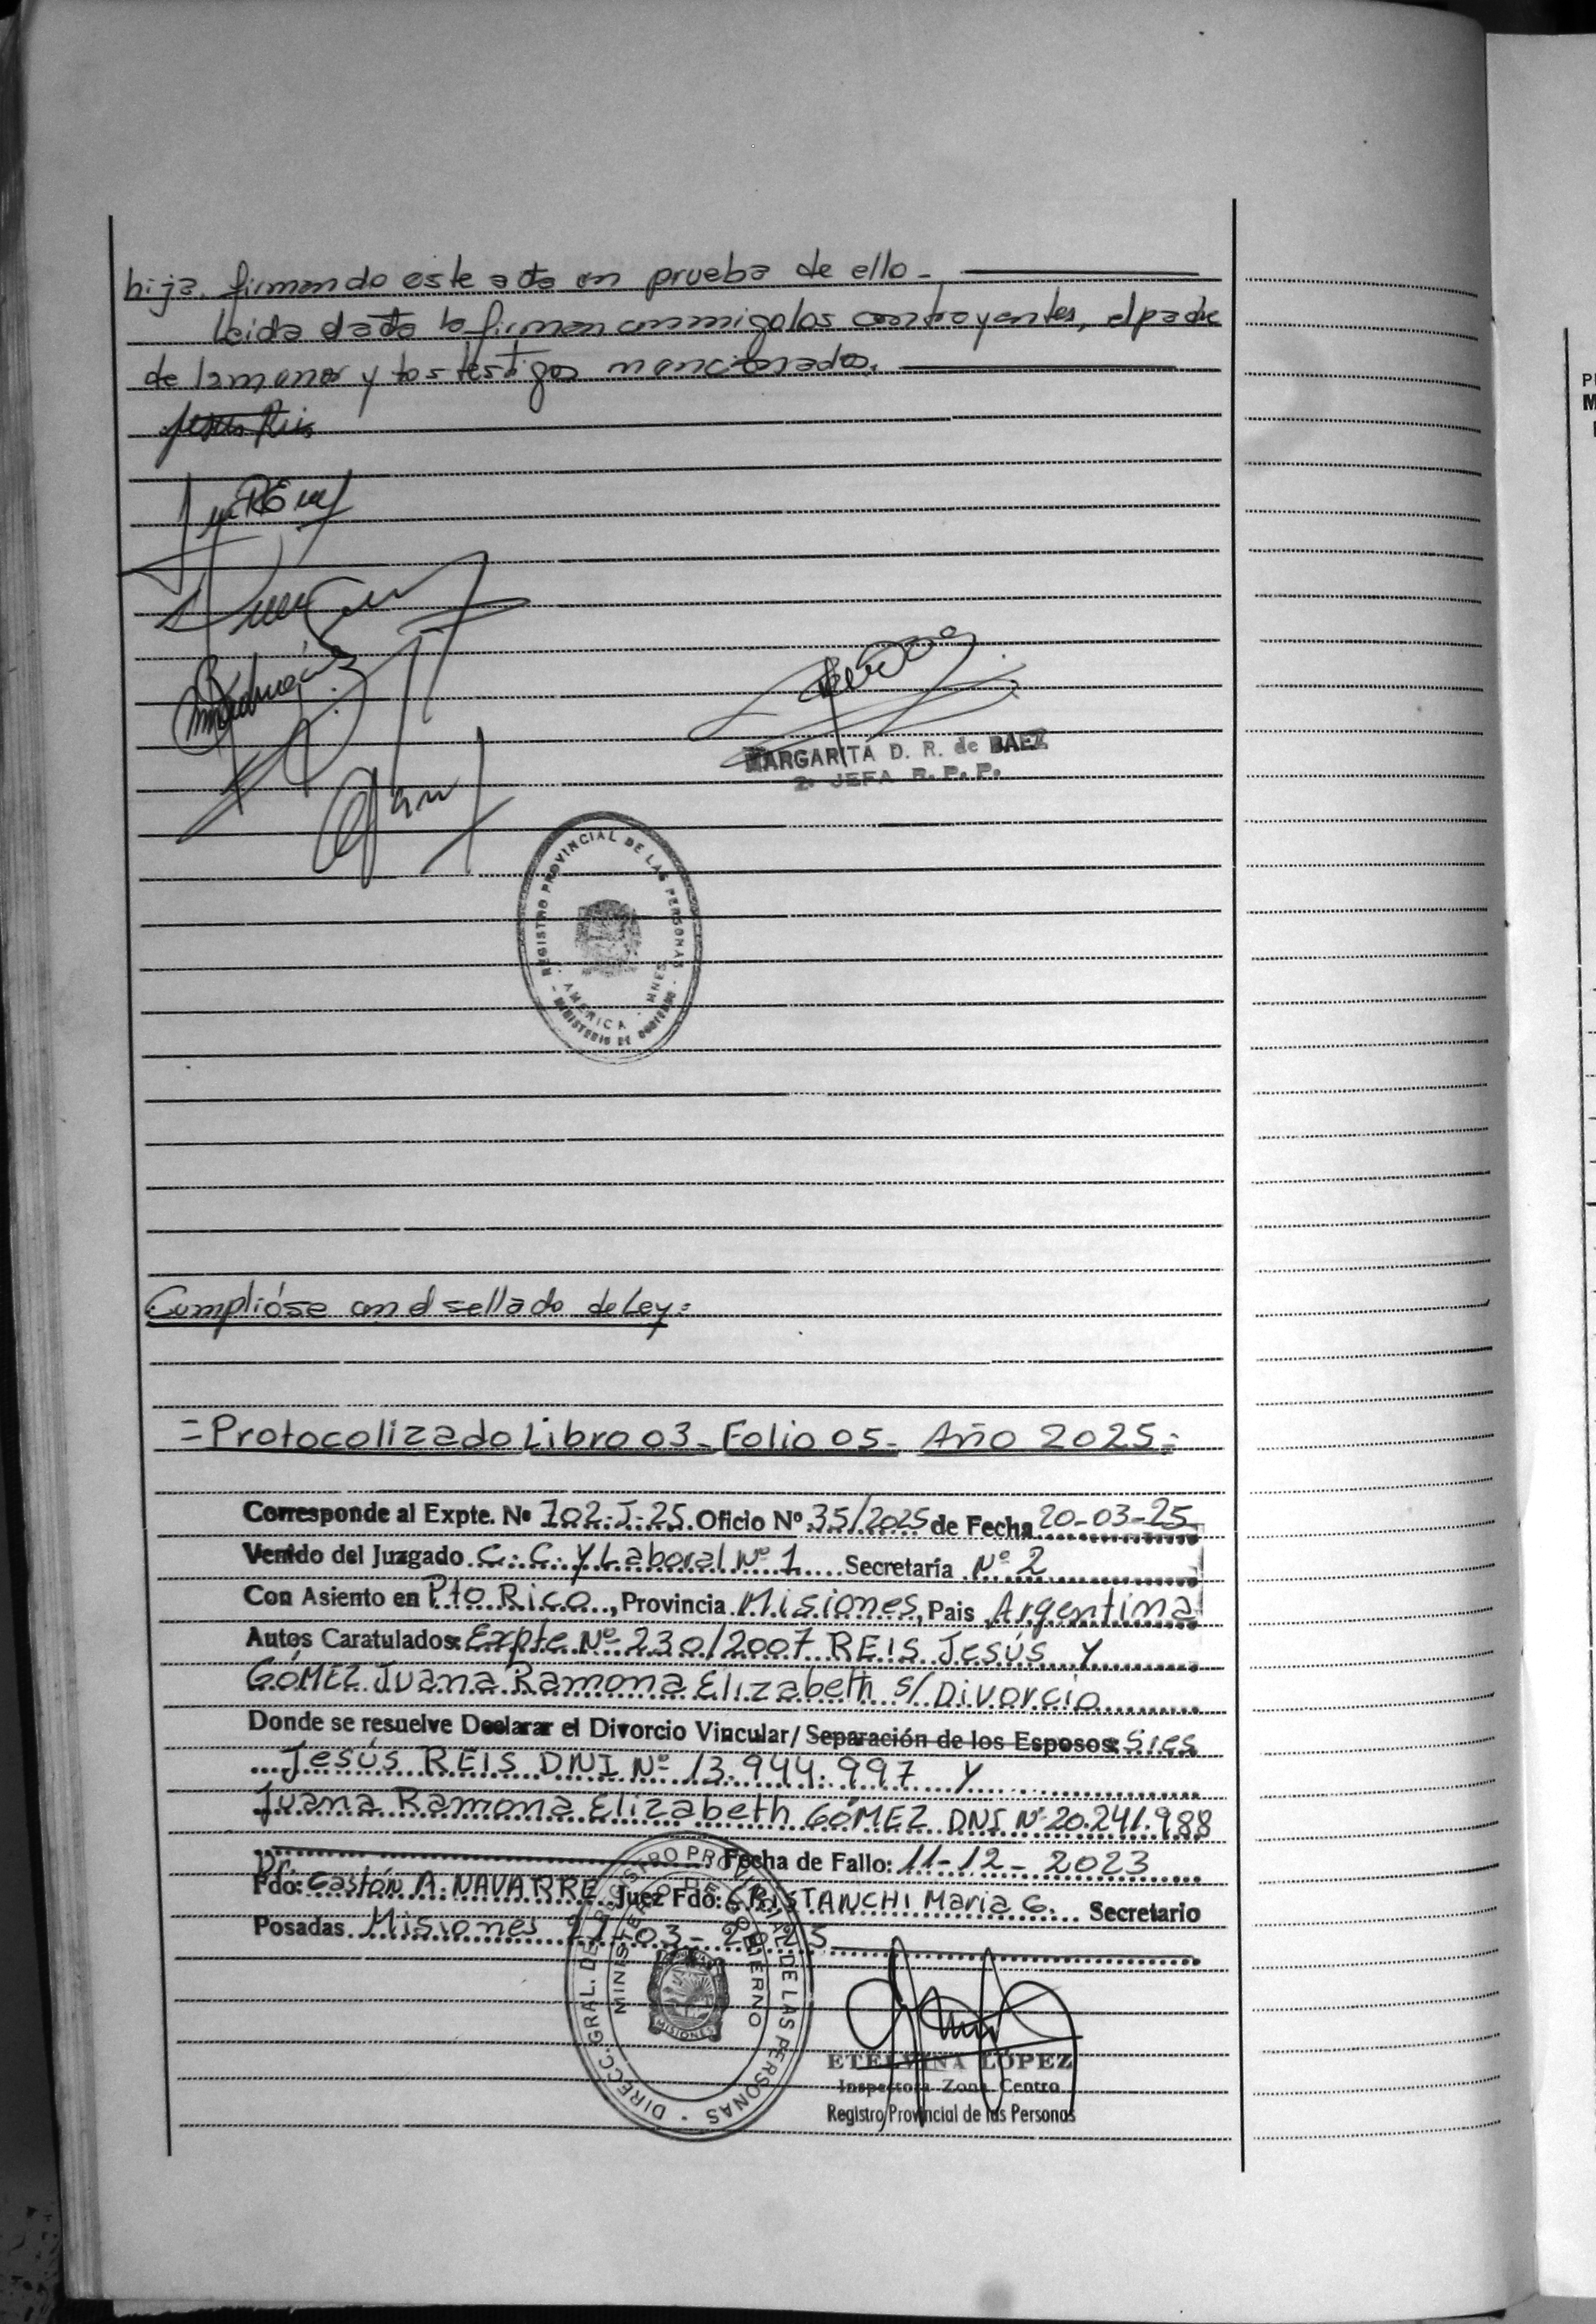 hija. firmando este acta en prueba de ello.-
Leida el acta la firman conmigo los contrayentes, el padre
de la menor y los testigos mencionados.
Jesus Reis
MARGARITA D. R. de BAEZ
2º JEFA R. P. P.
REGISTRO PROVINCIAL DE LAS PERSONAS
AMERICA - MNES
MINISTERIO DE GOBIERNO
Cumplióse con el sellado de Ley:
=Protocolizado Libro 03- Folio 05- Año 2025=
Corresponde al Expte. Nº 702-J-25 Oficio Nº 35/2025 de Fecha 20-03-25
Venido del Juzgado C. C. Y Laboral Nº 1 Secretaría Nº 2
Con Asiento en Pto Rico, Provincia Misiones, Pais Argentina
Autos Caratulados: Expte Nº 230/2007 REIS Jesús Y
GÓMEZ Juana Ramona Elizabeth s/ Divorcio
Donde se resuelve Declarar el Divorcio Vincular/ Separación de los Esposos: Sres
Jesús REIS DNI Nº 13.944.997 Y
Juana Ramona Elizabeth GÓMEZ DNI Nº 20.241.988
Fecha de Fallo: 11-12-2023
Fdo: Dr. Gastón A. NAVARRE Juez Fdo: CRISTANCHI Maria G. Secretario
Posadas Misiones 27-03-2025
DIRECC. GRAL. DEL REGISTRO PROVINCIAL DE LAS PERSONAS
MINISTERIO DE GOBIERNO
MISIONES
ETELVINA LOPEZ
Inspectora Zona Centro
Registro Provincial de las Personas